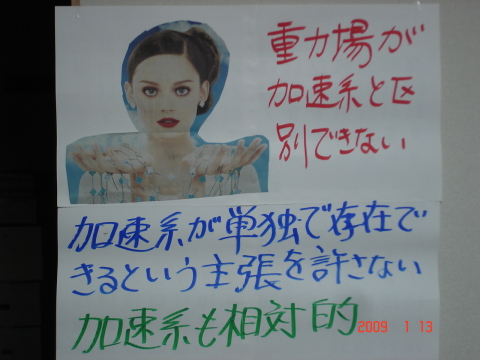 重力場が
加速系と区
別できない
加速系が単独で存在で
きるという主張を許さない
加速系も相対的
2009 1 13